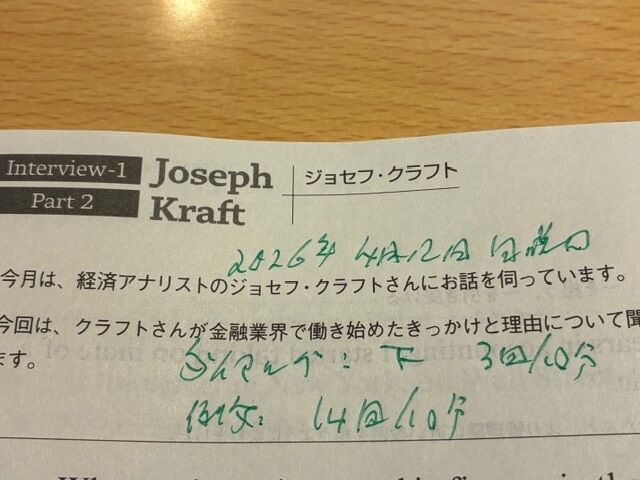 Interview-1
Part 2
Joseph
Kraft
ジョセフ・クラフト
2026年 4月12日 日曜日
今月は、経済アナリストのジョセフ・クラフトさんにお話を伺っています。
今回は、クラフトさんが金融業界で働き始めたきっかけと理由について聞
ます。
下 3回/10分
14回/10分